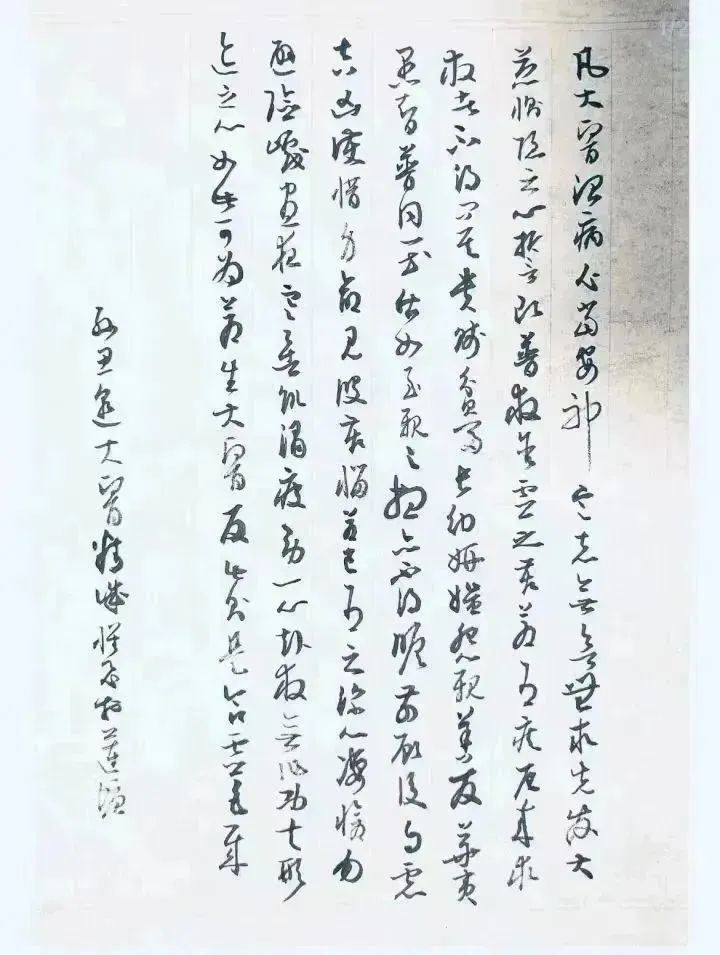 1/2
凡大醫治病必當安神定志無欲無求先發大
慈惻隱之心誓願普救含靈之苦若有疾厄來求
救者不得問其貴賤貧富長幼妍媸怨親善友華夷
愚智普同一等皆如至親之想亦不得瞻前顧後自慮
吉凶護惜身命見彼苦惱若己有之深心悽愴勿
避險巇晝夜寒暑飢渴疲勞一心赴救無作功夫形
迹之心如此可為蒼生大醫反此則是含靈巨賊
孫思邈大醫精誠